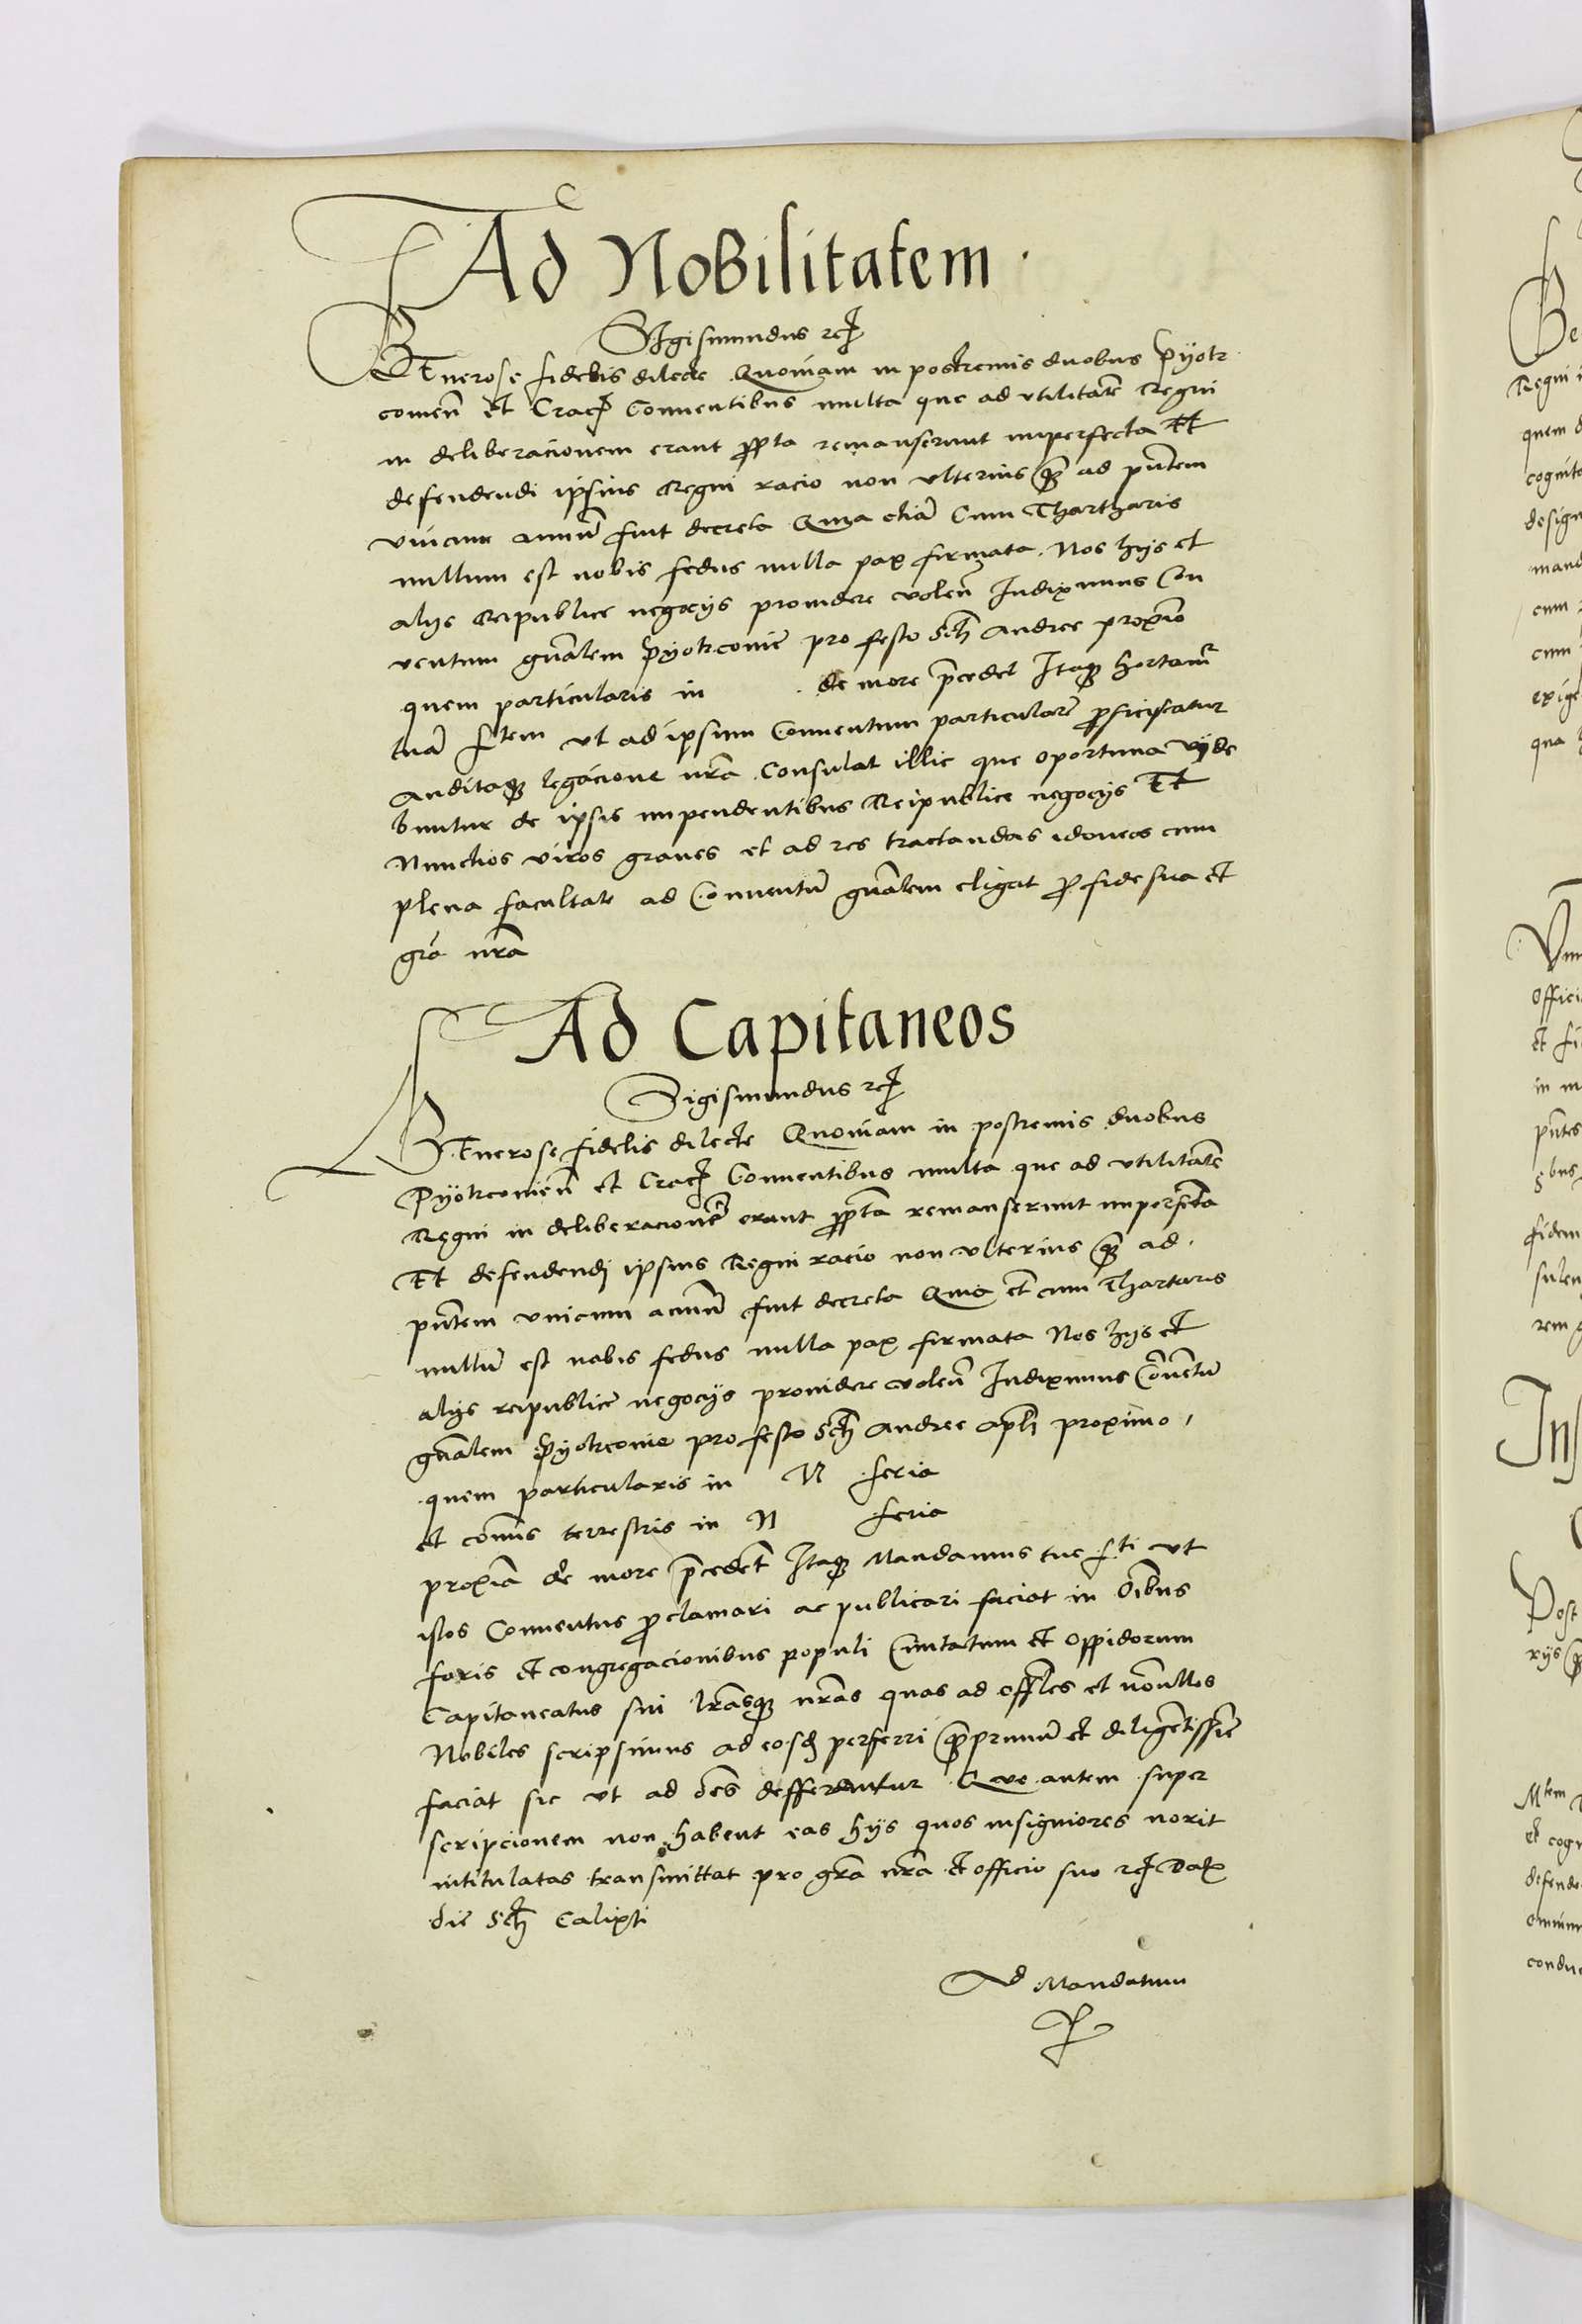 Ad Nobilitatem.
Sigismundus etc
GEnerose fidelis dilecte Quoniam in postremis duobus Pyotr
comen̄ Et Crac̄ Conuentibus multa que ad vtilitatē Regni
in deliberacionem erant p̄posita remanserunt imperfecta Et
defendendi ipsius Regni racio non vlterius q̄ȝ ad pn̄tem
vnicum annū fuit decreta Quia etiā Cum Thartharis
nullum est nobis fedus nulla pax firmata. Nos hijs et
alijs Reipublice negocijs prouidere volen̄ Indiximus Con
uentum gnālem Pyotrconie pro festo Scti Andree proximo
quem particularis in de more p̄cedet Itaqȝ hortamur
tuā f.tem vt ad ipsum Conuentum particularē proficiscatur
Auditaqȝ legacione nr̄a Consulat illic que oportuna vide
buntur de ipsis impendentibus Reipublice negocijs Et
Nunctios viros graues et ad res tractandas idoneos cum
plena facultate ad Conuentū gnālem eligat pro fide sua et
grā nr̄a
Ad Capitaneos
Sigismundus etc
GEnerose fidelis dilecte Quoniam in postremis duobus
Pyotrcomien̄ et Crac̄ Conuentibus multa que ad vtilitatē
Regni in deliberacionē erant p̄posita remanserunt imperfecta
Et defendendi ipsius Regni racio non vlterius q̄ȝ ad
pn̄tem vnicum annū fuit decreta Quia et cum Thartaris
nullū est nobis fedus nulla pax firmata Nos hijs et
alijs reipublice negocijs prouidere volen̄ Indiximus Conuentū
gnālem Pyotrconie pro festo Scti Andree apli proximo,
quem particularis in N feria
et com̄is terrestris in N feria
proxīa de more p̄cedent Itaqȝ Mandamus tue f.ti vt
istos Conuentus proclamari ac publicari faciat in oībus
foris et congregacionibus populi Ciuitatum et Oppidorum
Capitaneatus sui lr̄asqȝ nr̄as quas ad offīales et nōnullos
Nobiles scripsimus ad eosd perferri q̄ȝprimū et diligētissīe
faciat sic vt ad oēs defferantur Que autem super
scripcionem non habent eas hijs quos insigniores norit
intitulatas transmittat pro grā nr̄a et officio suo etc Dat
die Scti Calixti
Ad Mandatum